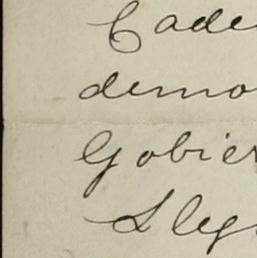 Cade
demo
Gobier
Sleg